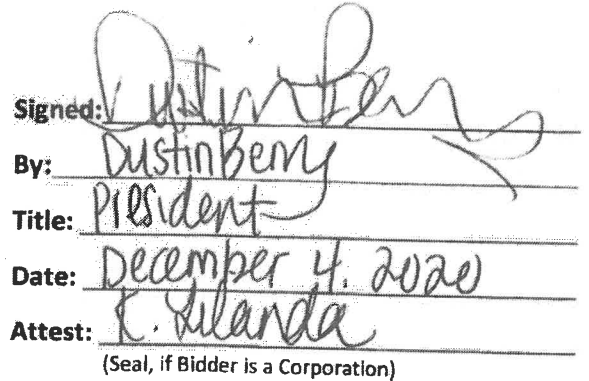 Signed: Dustin Berry
By: Dustin Berry
Title: President
Date: December 4, 2020
Attest: K.
(Seal, if Bidder is a Corporation)